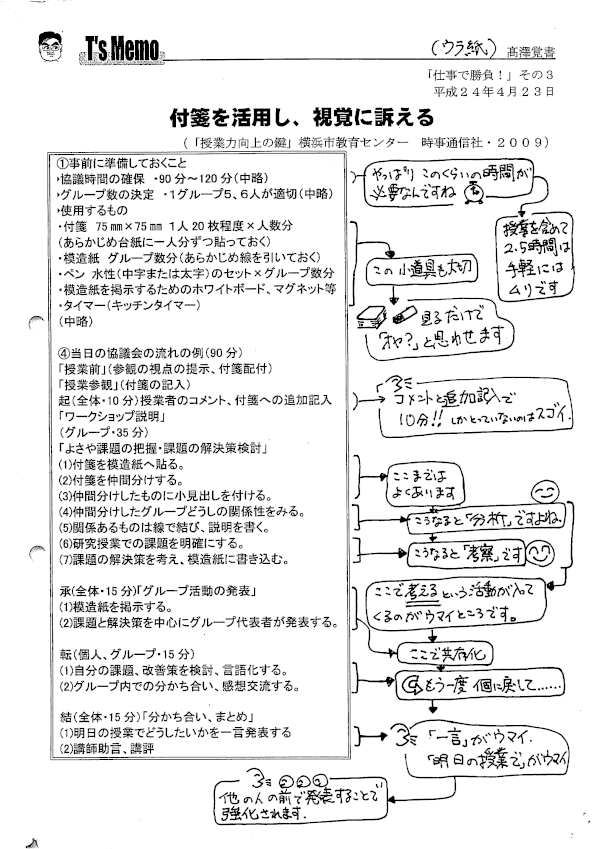 T's Memo
(ウラ紙) 髙澤覚書
「仕事で勝負！」その３
平成２４年４月２３日
付箋を活用し、視覚に訴える
(「授業力向上の鍵」横浜市教育センター 時事通信社・２００９)
①事前に準備しておくこと
・協議時間の確保 ・90分～120分(中略)
・グループ数の決定 ・1グループ5、6人が適切(中略)
・使用するもの
・付箋 75㎜×75㎜ 1人20枚程度×人数分
(あらかじめ台紙に一人分ずつ貼っておく)
・模造紙 グループ数分(あらかじめ線を引いておく)
・ペン 水性(中字または太字)のセット×グループ数分
・模造紙を掲示するためのホワイトボード、マグネット等
・タイマー(キッチンタイマー)
(中略)
④当日の協議会の流れの例(90分)
「授業前」(参観の視点の提示、付箋配付)
「授業参観」(付箋の記入)
起(全体・10分)授業者のコメント、付箋への追加記入
「ワークショップ説明」
(グループ・35分)
「よさや課題の把握・課題の解決策検討」
(1)付箋を模造紙へ貼る。
(2)付箋を仲間分けする。
(3)仲間分けしたものに小見出しを付ける。
(4)仲間分けしたグループどうしの関係性をみる。
(5)関係あるものは線で結び、説明を書く。
(6)研究授業での課題を明確にする。
(7)課題の解決策を考え、模造紙に書き込む。
承(全体・15分)「グループ活動の発表」
(1)模造紙を掲示する。
(2)課題と解決策を中心にグループ代表者が発表する。
転(個人、グループ・15分)
(1)自分の課題、改善策を検討、言語化する。
(2)グループ内での分かち合い、感想交流する。
結(全体・15分)「分かち合い、まとめ」
(1)明日の授業でどうしたいかを一言発表する
(2)講師助言、講評
やっぱり このくらいの時間が
必要なんですね
授業を含めて
2.5時間は
手軽には
ムリです
この小道具も大切
見るだけで
「オヤ？」と思わせます
コメントと追加記入で
10分!! しかとっていないのはスゴイ.
ここまでは
よくあります
こうなると「分析」ですよね.
こうなると「考察」です
ここで考えるという活動が入って
くるのがウマイところです。
ここで共有化
もう一度 個に戻して……
「一言」がウマイ.
「明日の授業で」がウマイ
他の人の前で発表することで
強化されます.